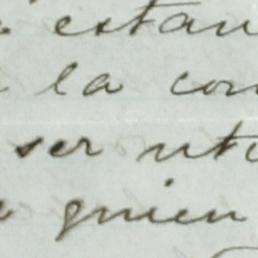 estan
la con
ser uti
quien